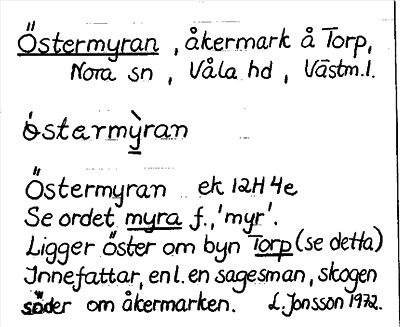 Östermyran, åkermark å Torp,
Nora sn, Våla hd, Västm.l.
östermỳran
Östermyran ek 12H 4e
Se ordet myra f., 'myr'.
Ligger öster om byn Torp (se detta)
Innefattar, enl. en sagesman, skogen
söder om åkermarken. L. Jonsson 1972.